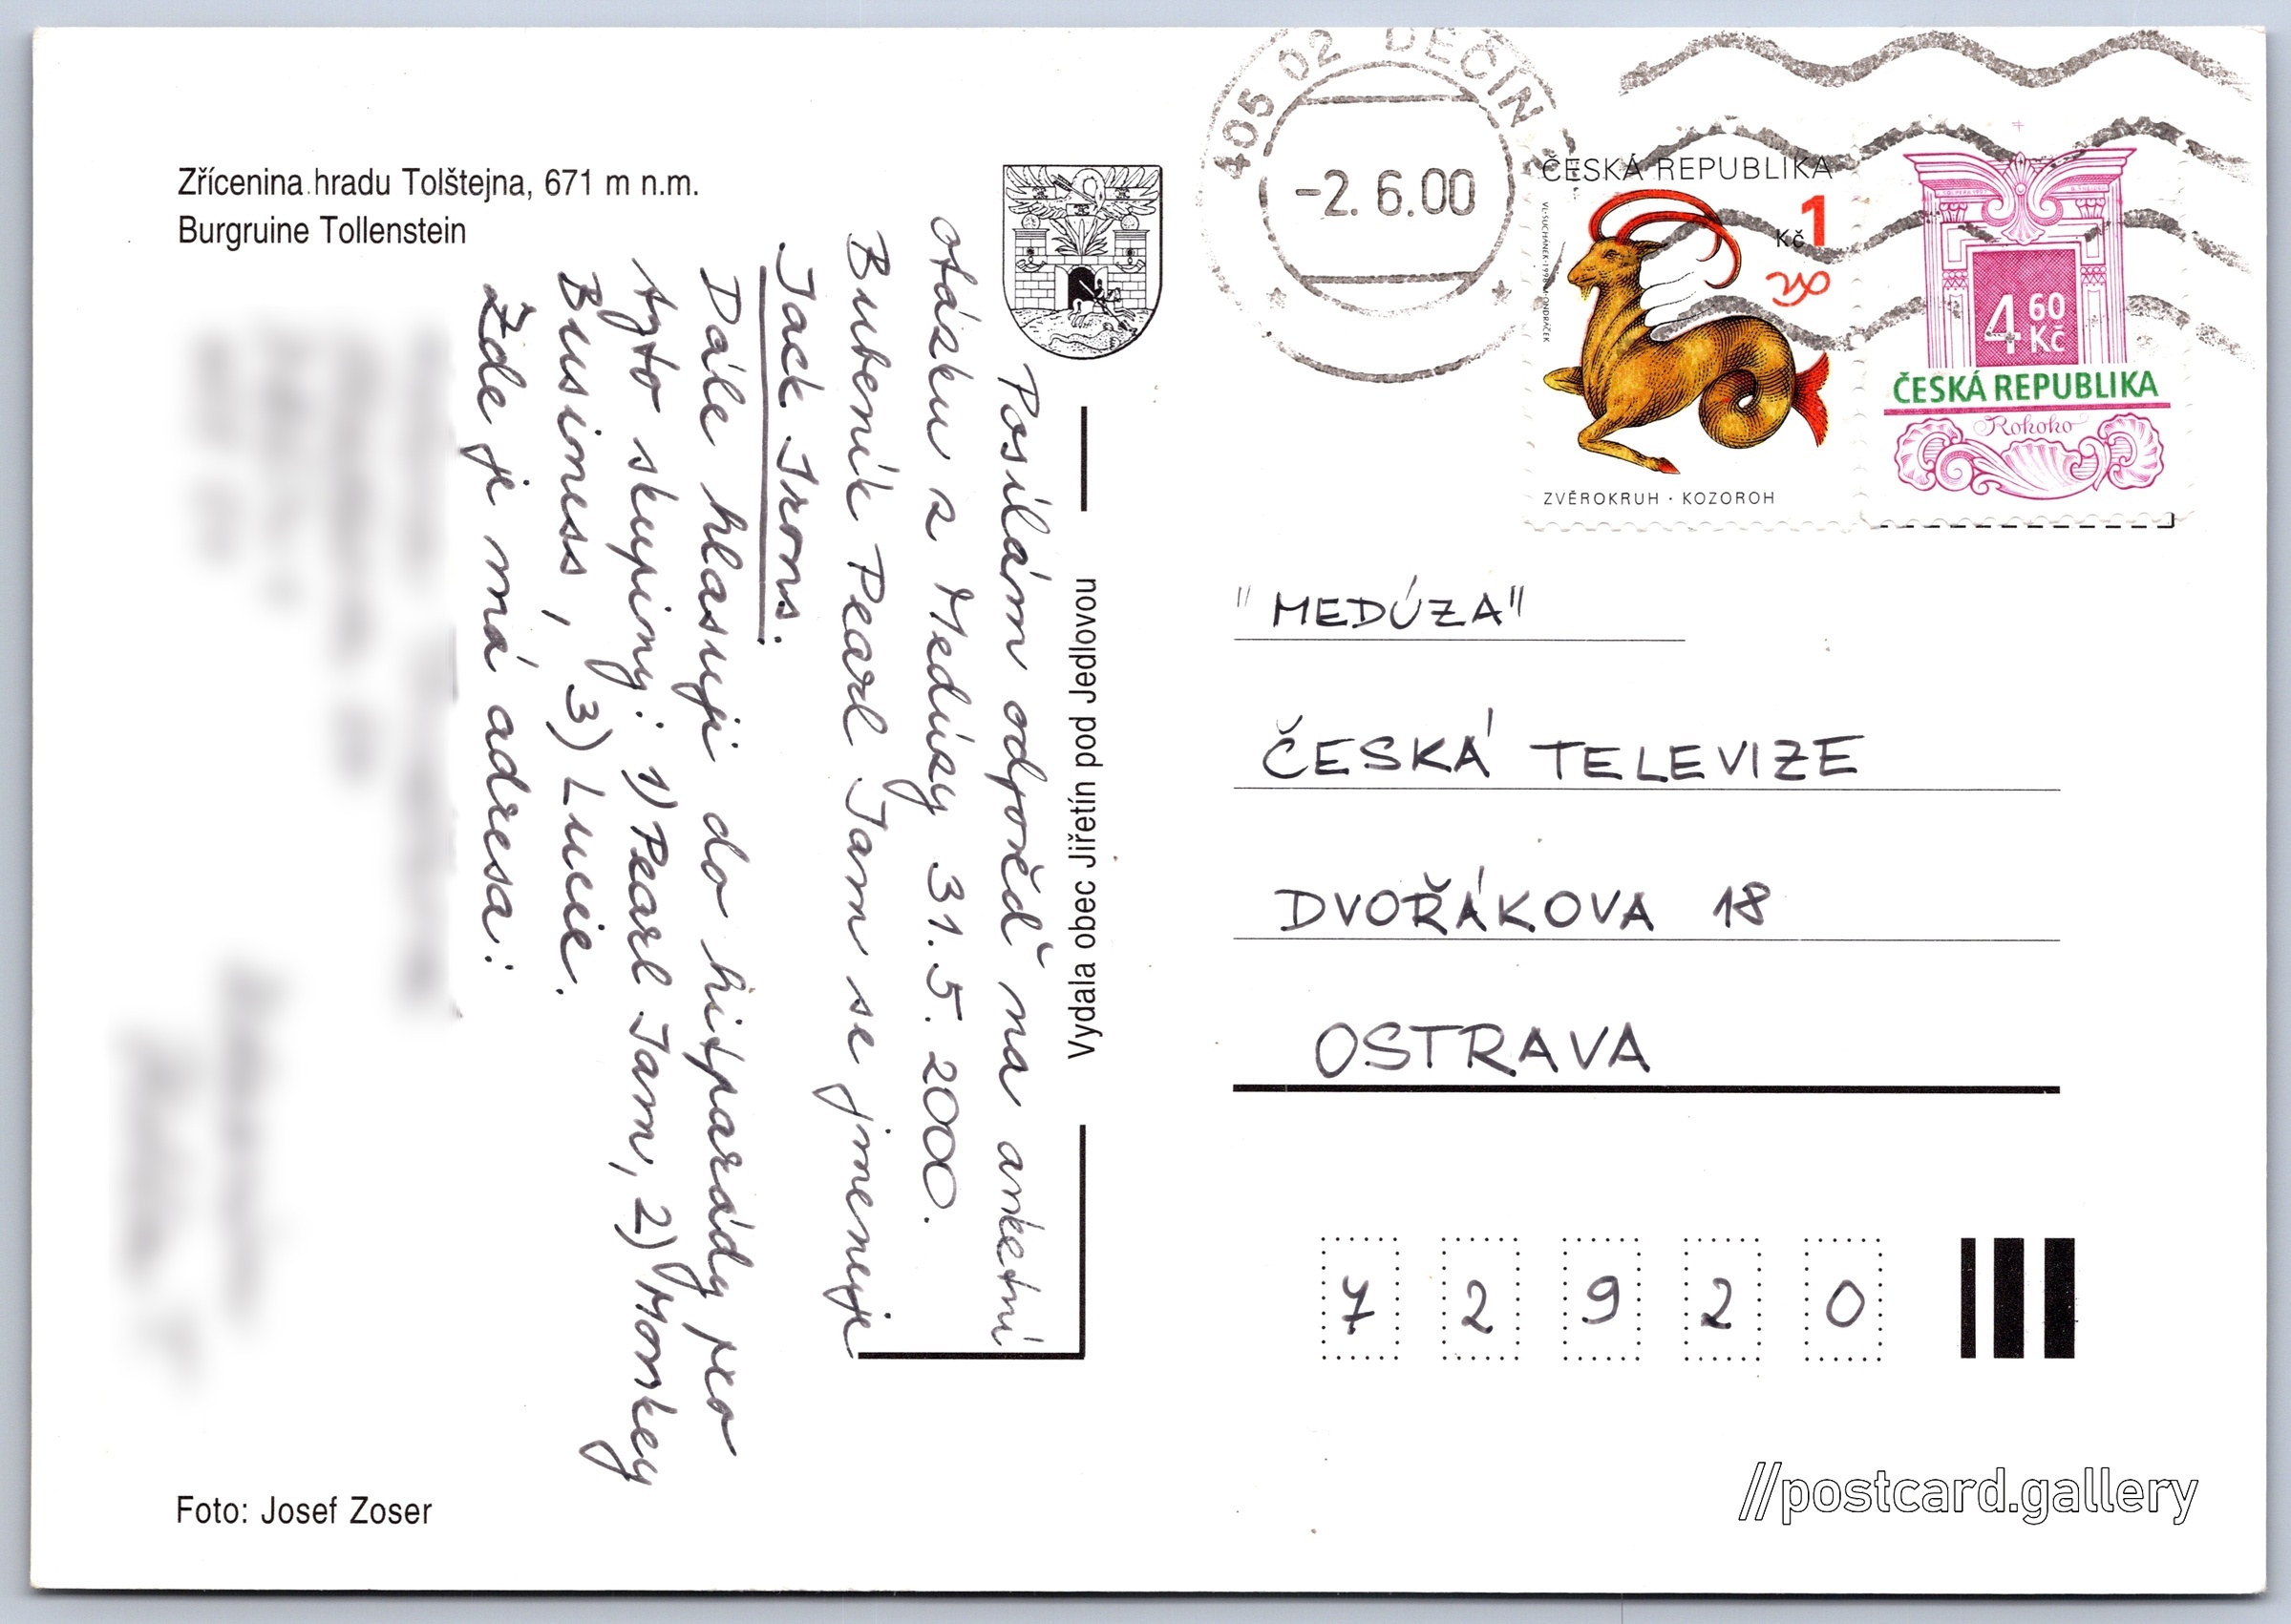 Zřícenina hradu Tolštejna, 671 m n.m.
Burgruine Tollenstein
Posílám odpověď na anketní
otázku z Medúzy 31.5.2000.
Bubeník Pearl Jam se jmenuje
Jack Irons.
Dále hlasuji do hitparády pro
tyto skupiny: 1) Pearl Jam, 2) Monkey
Business, 3) Lucie.
Zde je má adresa:
Vydala obec Jiřetín pod Jedlovou
Foto: Josef Zoser
405 02 DĚČÍN 2
-2.6.00
ČESKÁ REPUBLIKA
Kč 1
VL.SUCHÁNEK·1998·M.ONDRÁČEK
ZVĚROKRUH · KOZOROH
4 60
Kč
ČESKÁ REPUBLIKA
Rokoko
"MEDÚZA"
ČESKÁ TELEVIZE
DVOŘÁKOVA 18
OSTRAVA
7 2 9 2 0
//postcard.gallery